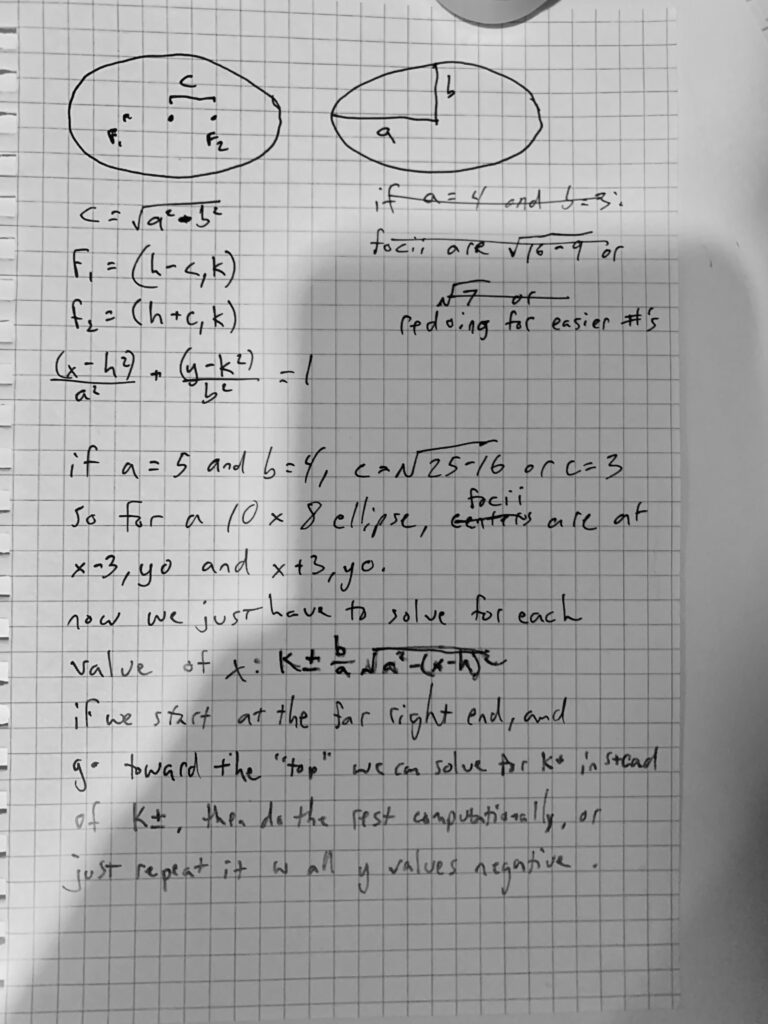 c
F₁
F₂
b
a
c = √a²-b²
F₁ = (h-c, k)
f₂ = (h+c, k)
(x-h²)/a² + (y-k²)/b² = 1
if a = 4 and b=3:
focii are √16-9 or
√7 or
redoing for easier #'s
if a = 5 and b=4, c=√25-16 or c=3
so for a 10 x 8 ellipse, centers focii are at
x-3, y0 and x+3, y0.
now we just have to solve for each
value of x: K± b/a √a²-(x-h)²
if we start at the far right end, and
go toward the "top" we can solve for K+ instead
of K±, then do the rest computationally, or
just repeat it w all y values negative.